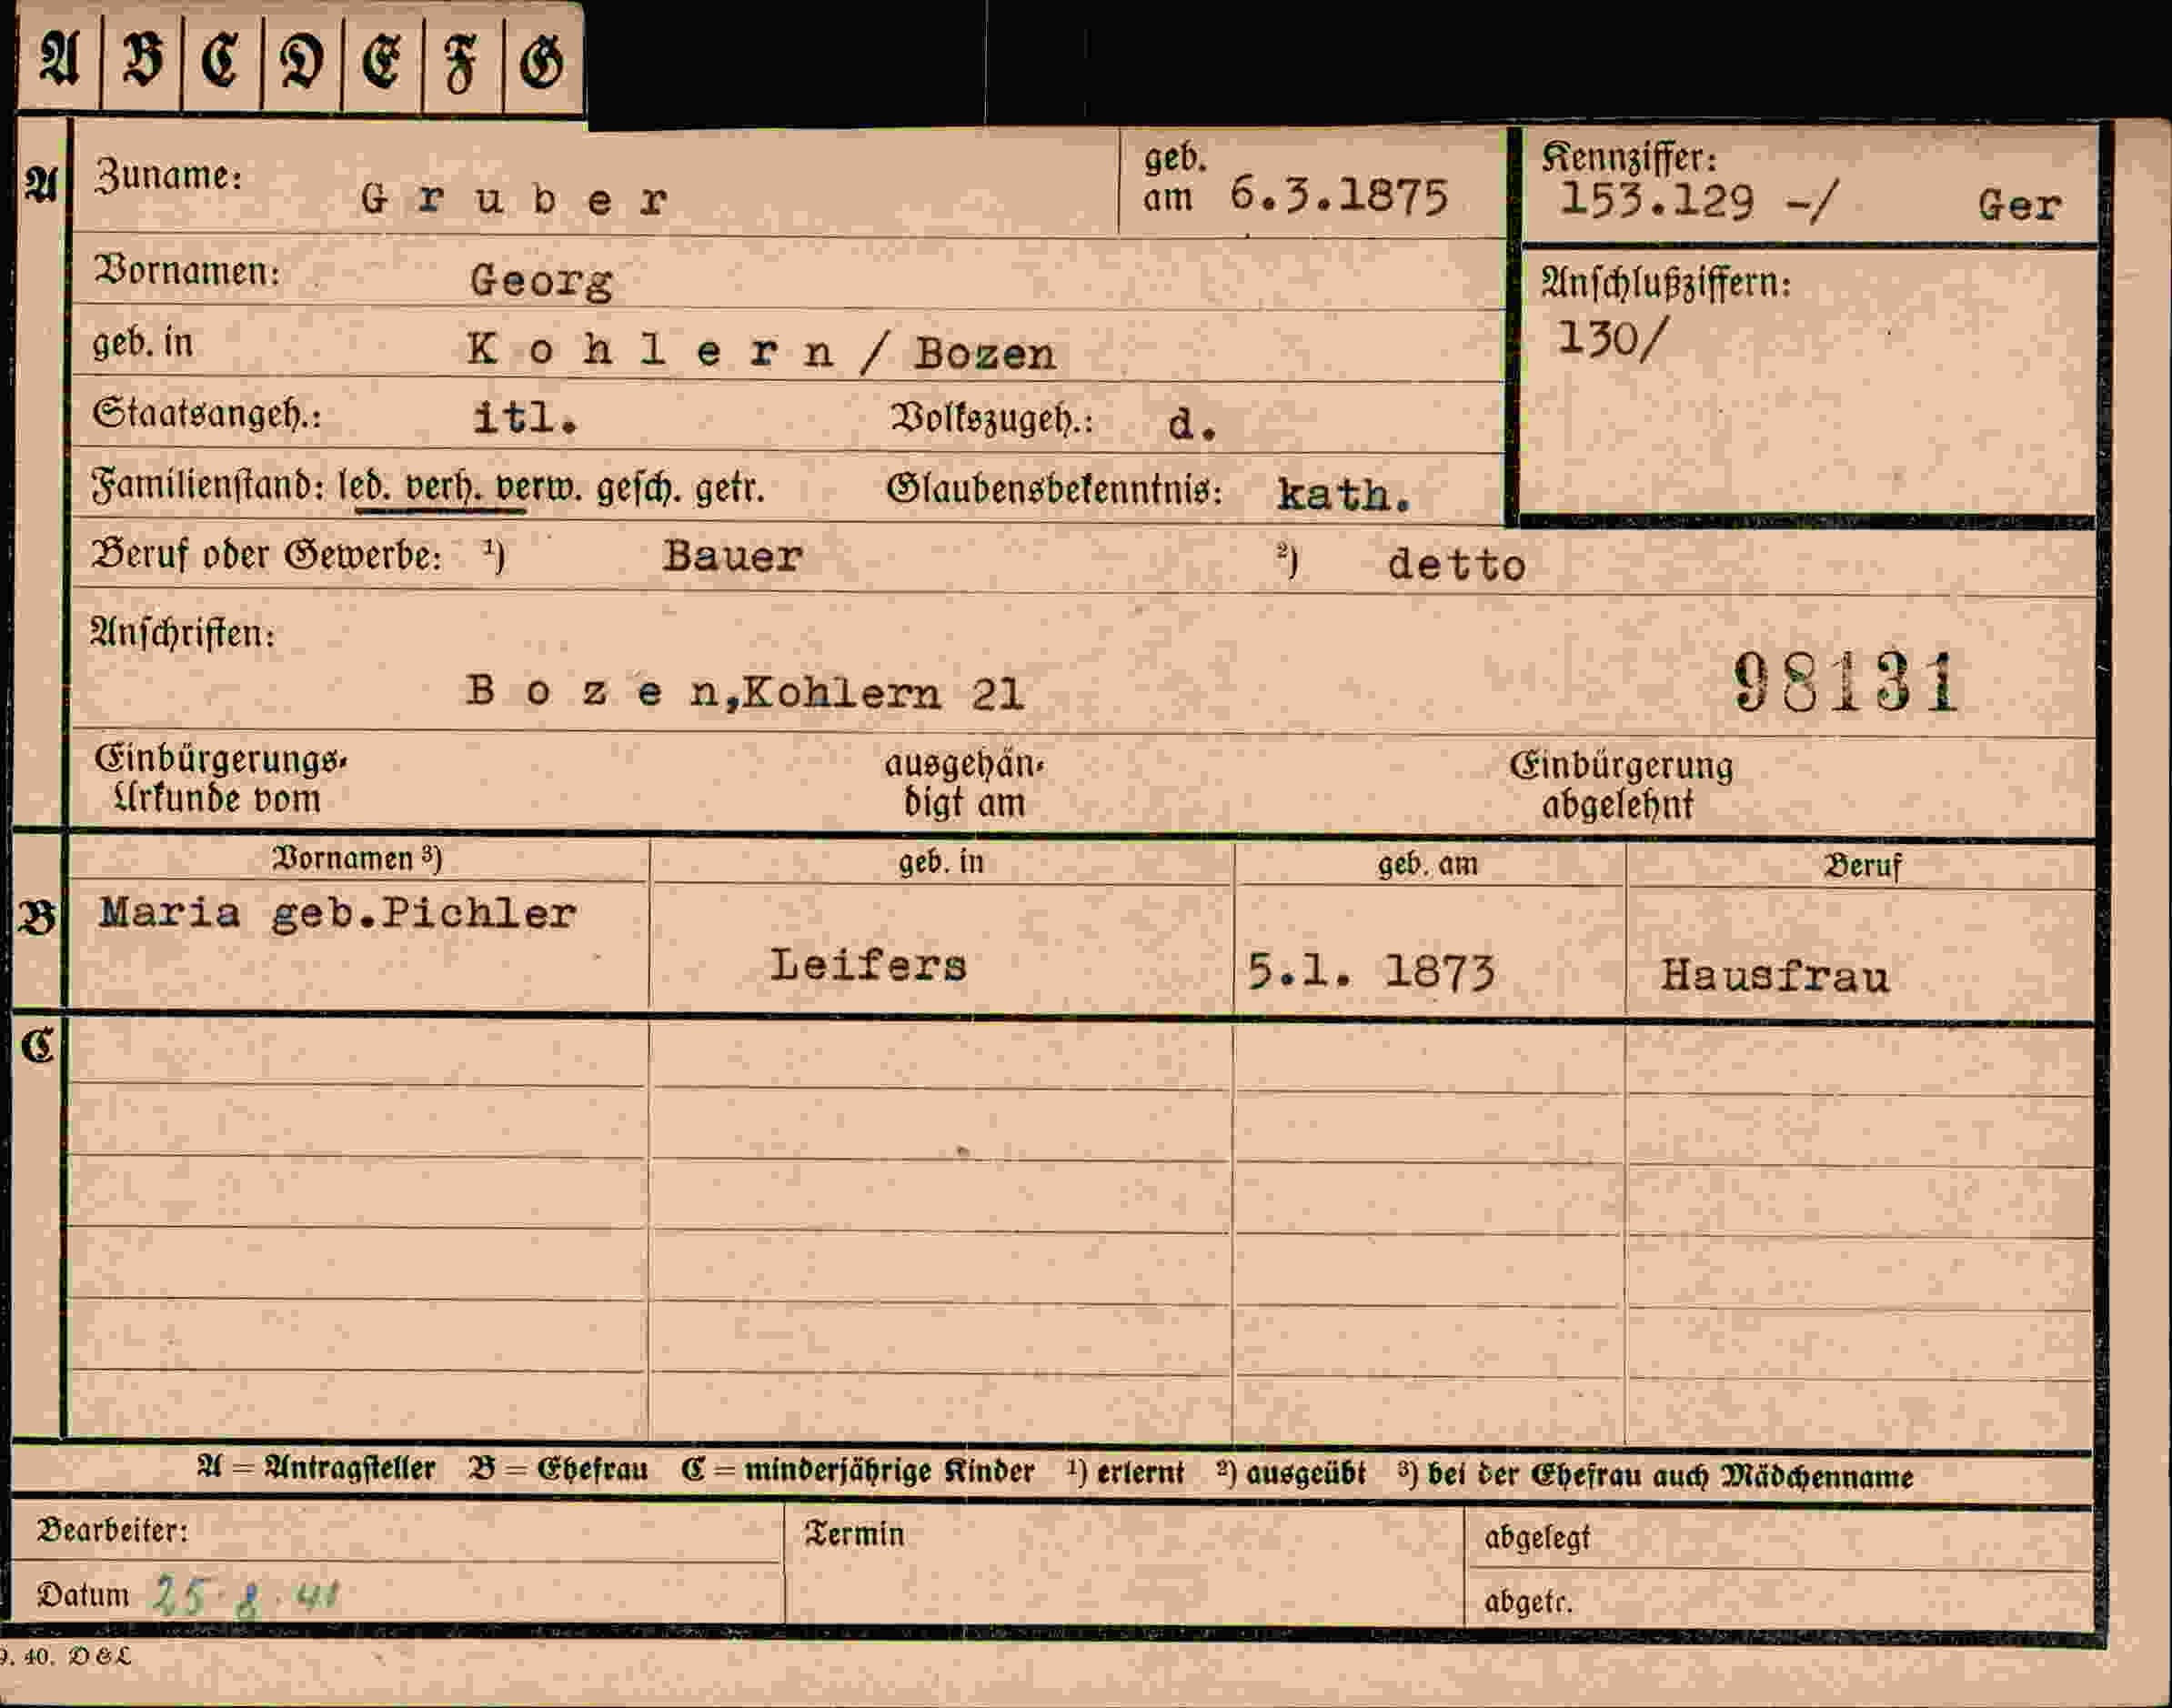 A B C D E F G
A Zuname: Gruber geb. am 6.3.1875 Kennziffer: 153.129 -/ Ger
Vornamen: Georg Anschlußziffern:
130/
geb. in Kohlern/Bozen
Staatsangeh.: itl. Volkszugeh.: d.
Familienstand: led. verh. verw. gesch. getr. Glaubensbekenntnis: kath.
Beruf oder Gewerbe: ¹) Bauer ²) detto
Anschriften:
Bozen,Kohlern 21 98131
Einbürgerungs- ausgehän- Einbürgerung
Urkunde vom digt am abgelehnt
Vornamen ³) geb. in geb. am Beruf
B Maria geb.Pichler
Leifers 5.1. 1873 Hausfrau
C
A = Antragsteller B = Ehefrau C = minderjährige Kinder ¹) erlernt ²) ausgeübt ³) bei der Ehefrau auch Mädchenname
Bearbeiter: Termin abgelegt
Datum 25.8.41 abgetr.
9. 40. D & L